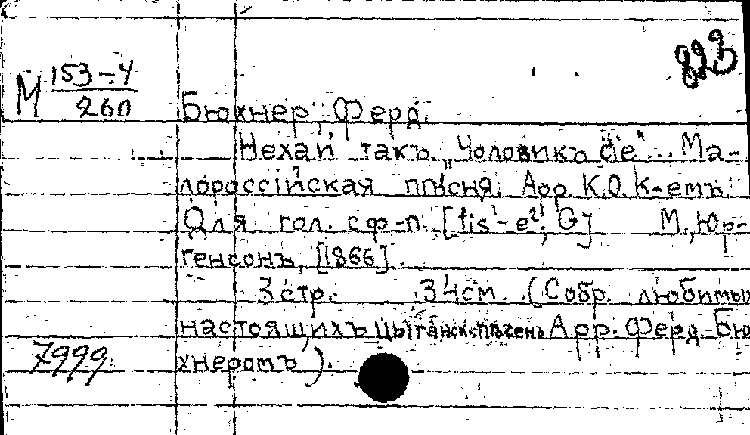 823
М 153-4
260
Бюхнер, Ферд.
Нехай такъ. „Чоловикъ
Ма-
лороссійская пѣсня. Арр. К.О. К-емъ.
Для гол. с ф-п. [fis¹-e², G] М., Юр-
генсонъ, [1866].
3 стр. 34 см. (Собр. любимы
настоящихъ цыганск. пѣсень Арр. Ферд. Бю
7999
хнеромъ).